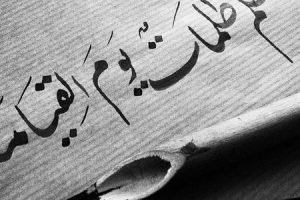 ظلمات يَومَ القيامة